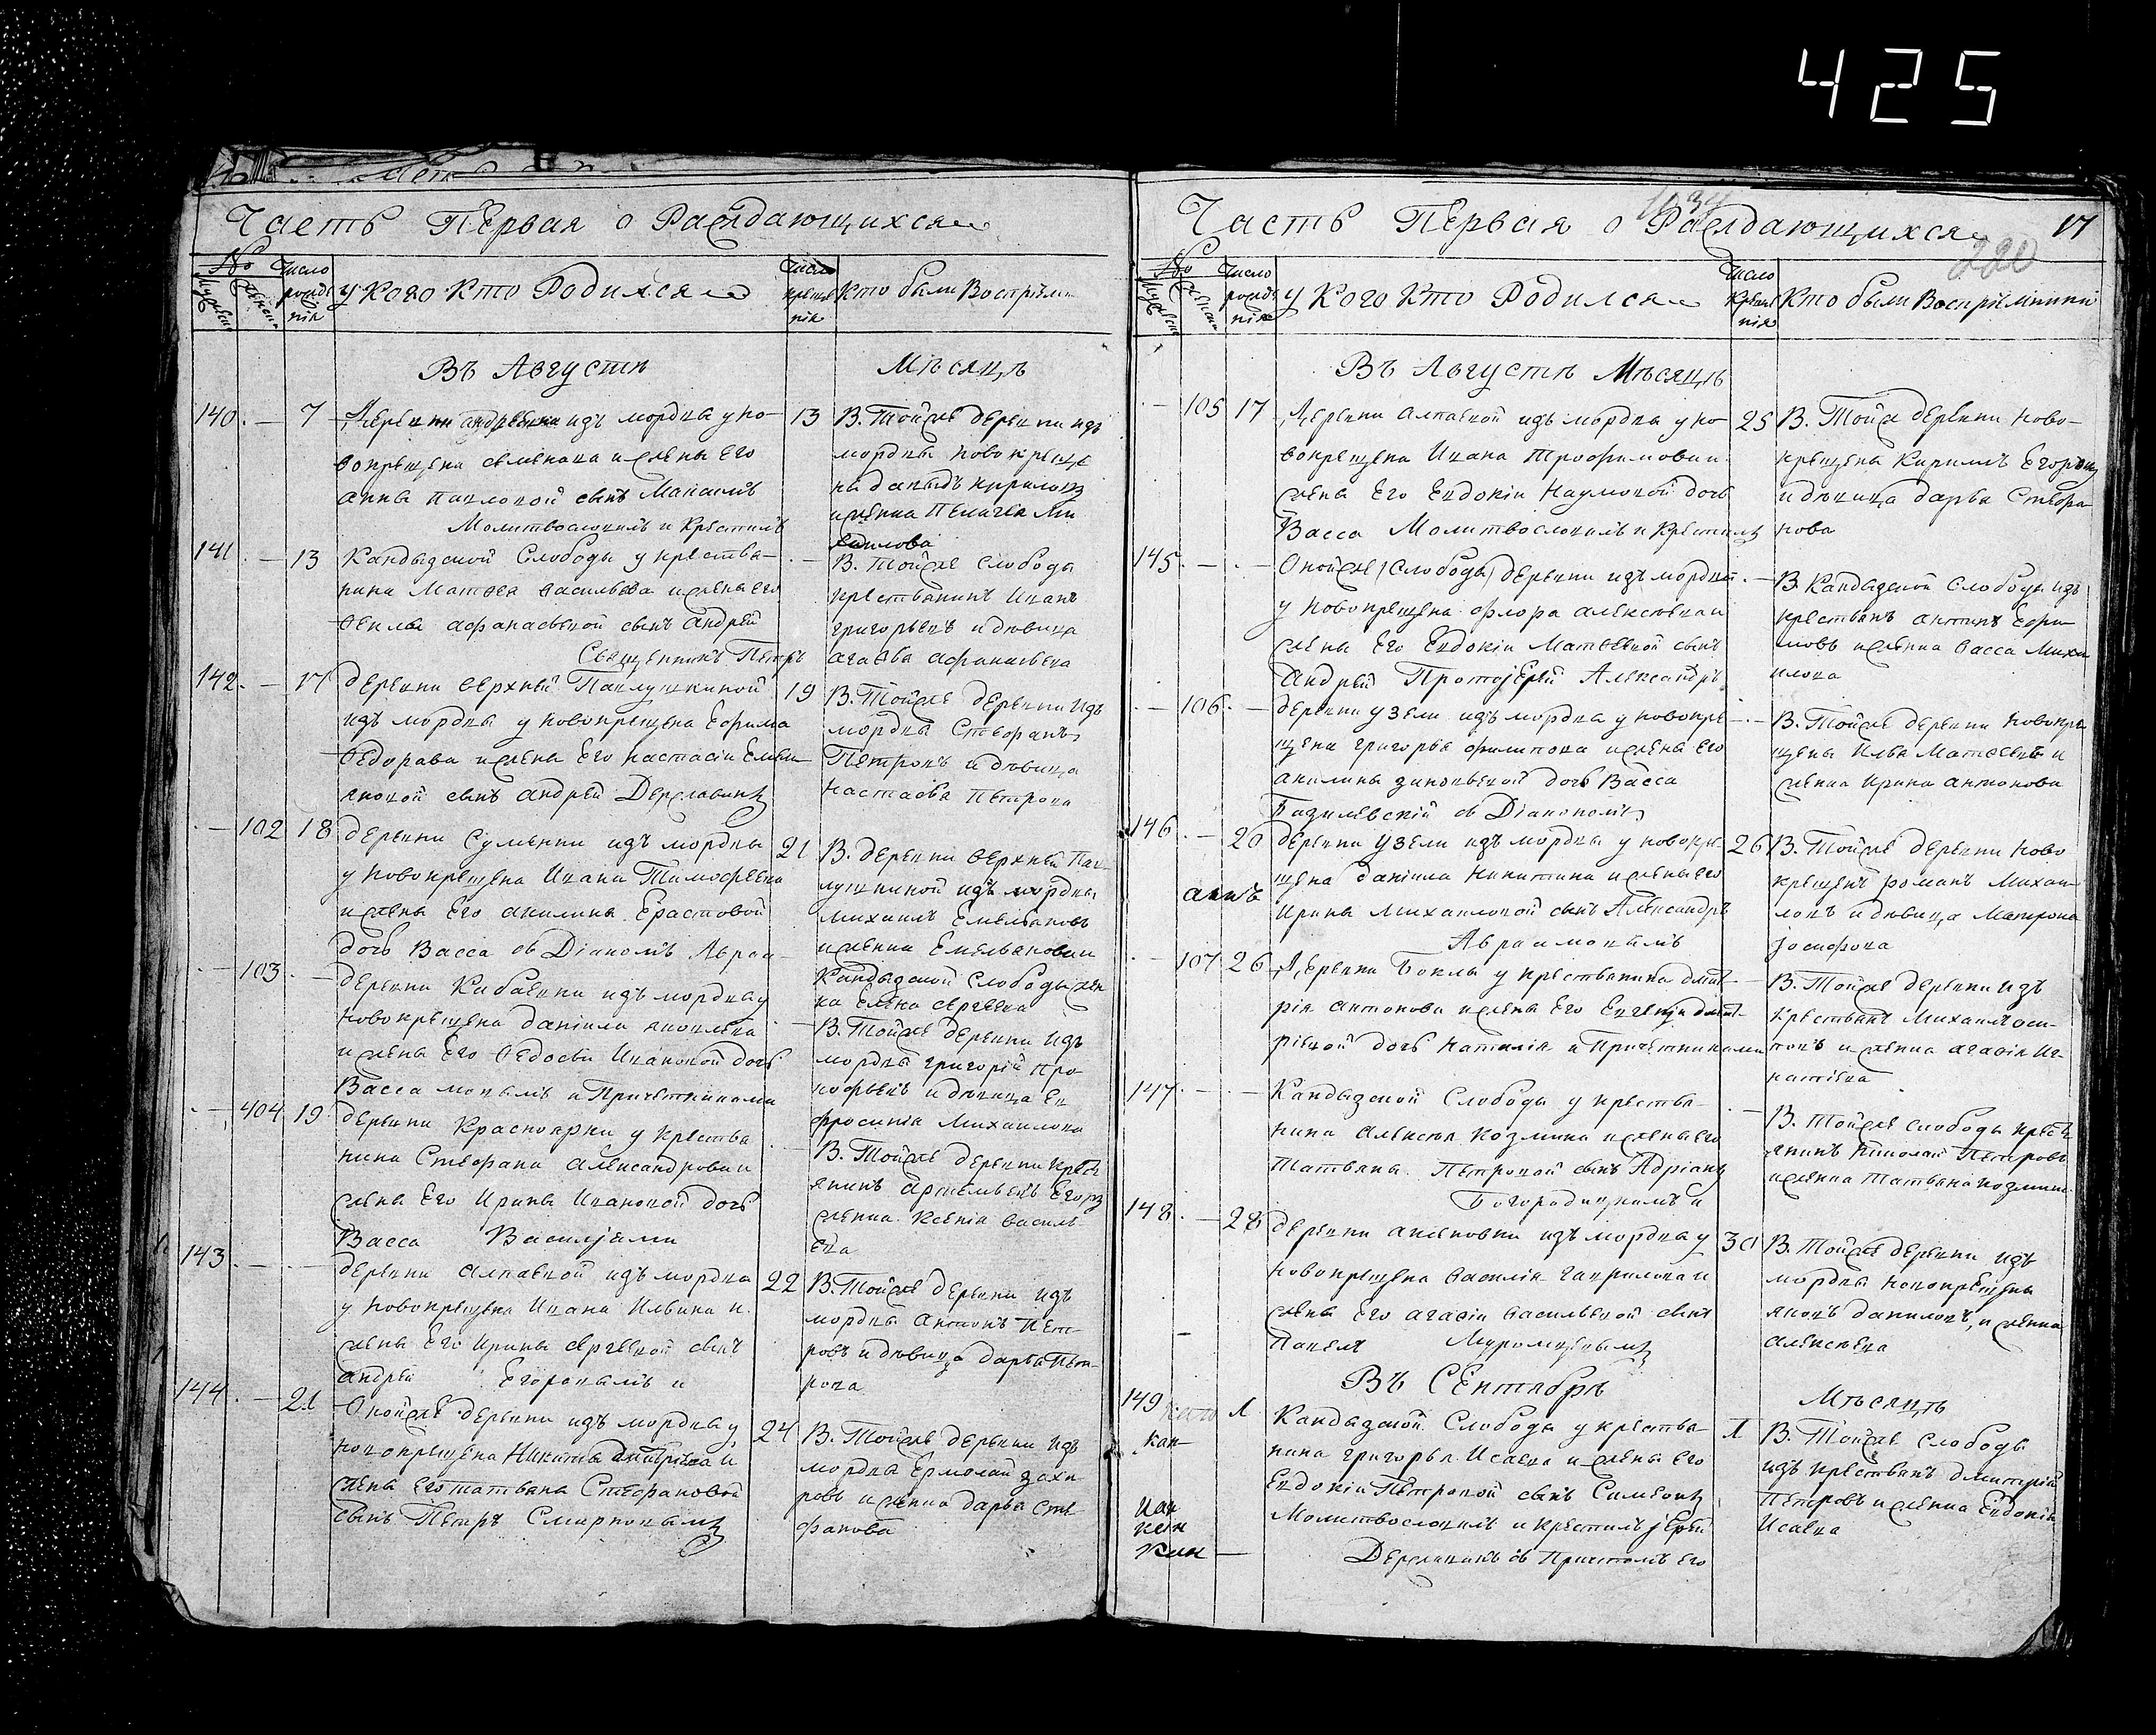 425
Часть Первая о Раждающихся
№
Мужеска
Женска
Число рожде нія
У кого кто Родился
Число креще нія
Кто были Воспріем
Въ Августѣ
Мѣсяцѣ
140 . — 7
Деревни изъ мордвы у но-
вокрещена и жены Его
анны павловой сынъ Михаилъ
Молитвословилъ и Крестилъ
13 В. Тойже деревни изъ
мордвы новокреще
141 . — 13 Кандызской Слободы у крестья-
нина Матвея васильева и жены его
феклы афанасьевой сынъ андрей
Священникъ Петръ
. — В. Тойже Слободы
крестьянинъ Иванъ
григорьевъ и дѣвица
агафья афанасьева
142 . — 17 деревни верхней Павлушкиной
изъ мордвы у новокрещена Ефима
Федорова и жены Его настасіи Емель
яновой сынъ андрей Державинъ
19 В. Тойже деревни изъ
мордвы Стефанъ
Петровъ и дѣвица
Настасья Петрова
. — 102 18 деревни изъ мордвы
у новокрещена Ивана Тимофеева
и жены Его акилины Ерастовой
дочь Васса съ Діакономъ Авраа-
21 В. деревни верхней Пав-
лушкиной изъ мордвы
михаилъ Емельяновъ
. — 103 . — деревни изъ мордвы у
новокрещена даніила яковлева
и жены Его Федосьи Ивановой дочь
Васса мовымъ и Причетниками
Кандызской Слободы жен
ка Елена сергѣева
В. Тойже деревни изъ
мордвы григорій про
кофьевъ и дѣвица Ев
фросинія Михаилова
. — 104 19 деревни Красноярки у крестья
нина Стефана александрова и
жены Его Ирины Ивановой дочь
Васса Васильемъ
В. Тойже деревни крест
янинъ Егоръ
женка Ксенія василь
ева
143 . — . — деревни алпаевой изъ мордвы
у новокрещена Ивана Ильина и
жены Его Ирины сергѣевой сынъ
андрей Егоровымъ и
22 В. Тойже деревни изъ
мордвы антонъ Пет-
ровъ и дѣвица дарья Пет-
рова
144 . — 21 Онойже деревни изъ мордвы у
новокрещена Никиты дмитріева и
жены Его татьяны Стефановой
сынъ Петръ Смирновымъ
24 В. Тойже деревни изъ
мордвы Ермолай заха
ровъ и женка дарья сте
фанова
Часть Первая о Раждающихся
17
220
№
Мужеска
Женска
Число рожде нія
У кого кто Родился
Число Креще нія
Кто были Воспріемники
Въ Августѣ Мѣсяцѣ
. — 105 17 Деревни алпаевой изъ мордвы у но
вокрещена Ивана Трофимова и
жены Его Евдокіи Наумовой дочь
Васса Молитвословилъ и Крестилъ
25 В. Тойже деревни ново-
крещены Кирилъ Егоровъ
и дѣвица дарья Стефа
нова
145 . — . — Онойже (Слободы) деревни изъ мордвы
у новокрещена флора алексѣева и
жены Его Евдокіи Матвѣевой сынъ
андрей Протоіерей Александръ
. — В Кандызской слободы изъ
крестьянъ антипъ Ефи
мовъ и женка васса Миха
илова
. — 106 . — деревни узели изъ мордвы у новокре
щена григорья филипова и жены Его
акилины зиновьевой дочь Васса
Базилевскій съ Діакономъ
. — В. Тойже деревни новокре
щены Илья Матвѣевъ и
женка Ирина антонова
146 . — 26 деревни Узели изъ мордвы у новокре
щена даніила Никитина и жены его
Ирины михаиловой сынъ Александръ
Авраамовымъ
26 В. Тойже деревни ново
крещенъ романъ Михаи
ловъ и дѣвица Матрона
Іосифова
. — 107 26 Деревни Боклы у крестьянина дмит
рія антонова и жены Его Евгеніи дмит-
ріевой дочь наталія и Причетниками
— В. Тойже деревни изъ
Крестьянъ Михаилъ оси-
повъ и женка агафія Иг
натіева
147 . — . — Кандызской Слободы у крестья-
нина алексѣя козмина и жены его
Татьяны Петровой сынъ Адріанъ
Богородицкимъ и
. — В. Тойже слободы крест
янинъ Николай Петровъ
и женка татьяна козмина
148 . — 28 деревни изъ мордвы у
новокрещена василія гаврилова и
жены Его агафіи васильевой сынъ
Павелъ Муромцевымъ
30 В. Тойже деревни изъ
мордвы новокрещены
яковъ даниловъ, и женка
алексѣева
Въ СЕнтябрѣ
Мѣсяцѣ
149 1 Кандызской Слободы у крестья-
нина григорья Исаева и жены его
Евдокіи Петровой сынъ Симеонъ
Молитвословилъ и крестилъ Іерей
Державинъ съ Причтомъ его
1 В. Тойже слободы
изъ крестьянъ дмитрій
Петровъ и женка Евдокія
Исаева